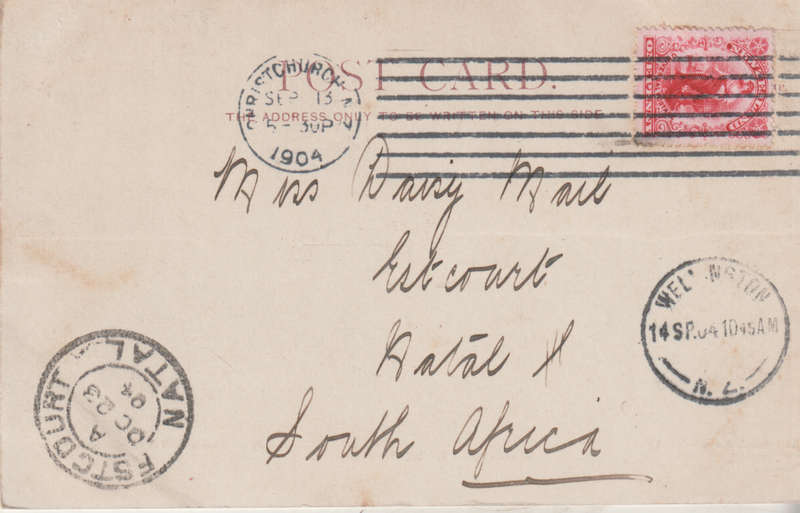 POST CARD.
THE ADDRESS ONLY TO BE WRITTEN ON THIS SIDE
CHRISTCHURCH N.Z
SEP 13
5-30P
1904
Miss Daisy Mail
Estcourt
Natal
South Africa
WEL NGTON
14 SP.04 1045AM
N. Z.
ESTCOURT NATAL
A
OC 23
04